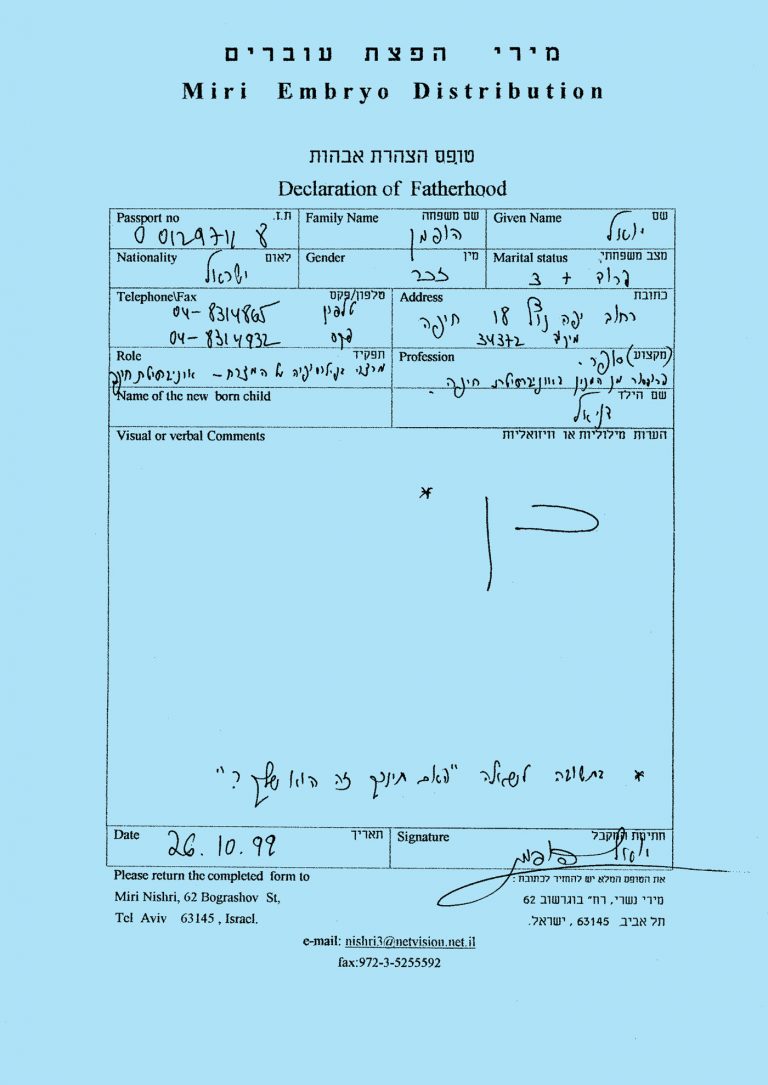 מירי הפצת עוברים
Miri Embryo Distribution
טופס הצהרת אבהות
Declaration of Fatherhood
Passport no ת.ז. Family Name שם משפחה Given Name שם
0 0129711 8 הופמן יואל
Nationality לאום Gender מין Marital status מצב משפחתי
ישראל זכר נשוי + 3
Telephone\Fax טלפון/פקס Address כתובת
04-8314865 טלפון רחוב יפה נוף 18 חיפה
04-8314932 פקס מיקוד 34372
Role תפקיד Profession (מקצוע) סופר.
מרצה בפילוסופיה של המזרח - אוניברסיטת חיפה
פרופסור מן המנין באוניברסיטת חיפה.
Name of the new born child שם הילד
דניאל
Visual or verbal Comments הערות מילוליות או ויזואליות
* כן
* בתשובה לשאלה "האם תינוק זה הוא שלך?"
Date תאריך Signature חתימת המקבל
26.10.99 יואל הופמן
Please return the completed form to את הטופס המלא יש להחזיר לכתובת:
Miri Nishri, 62 Bograshov St, מירי נשרי, רח" בוגרשוב 62
Tel Aviv 63145 , Israel. תל אביב 63145 , ישראל.
e-mail: nishri3@netvision.net.il
fax:972-3-5255592